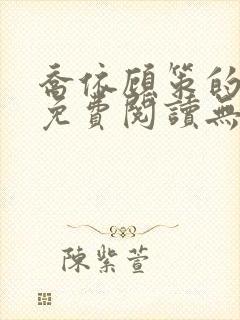 喬依顧策的
免費閱讀無
陳紫萱